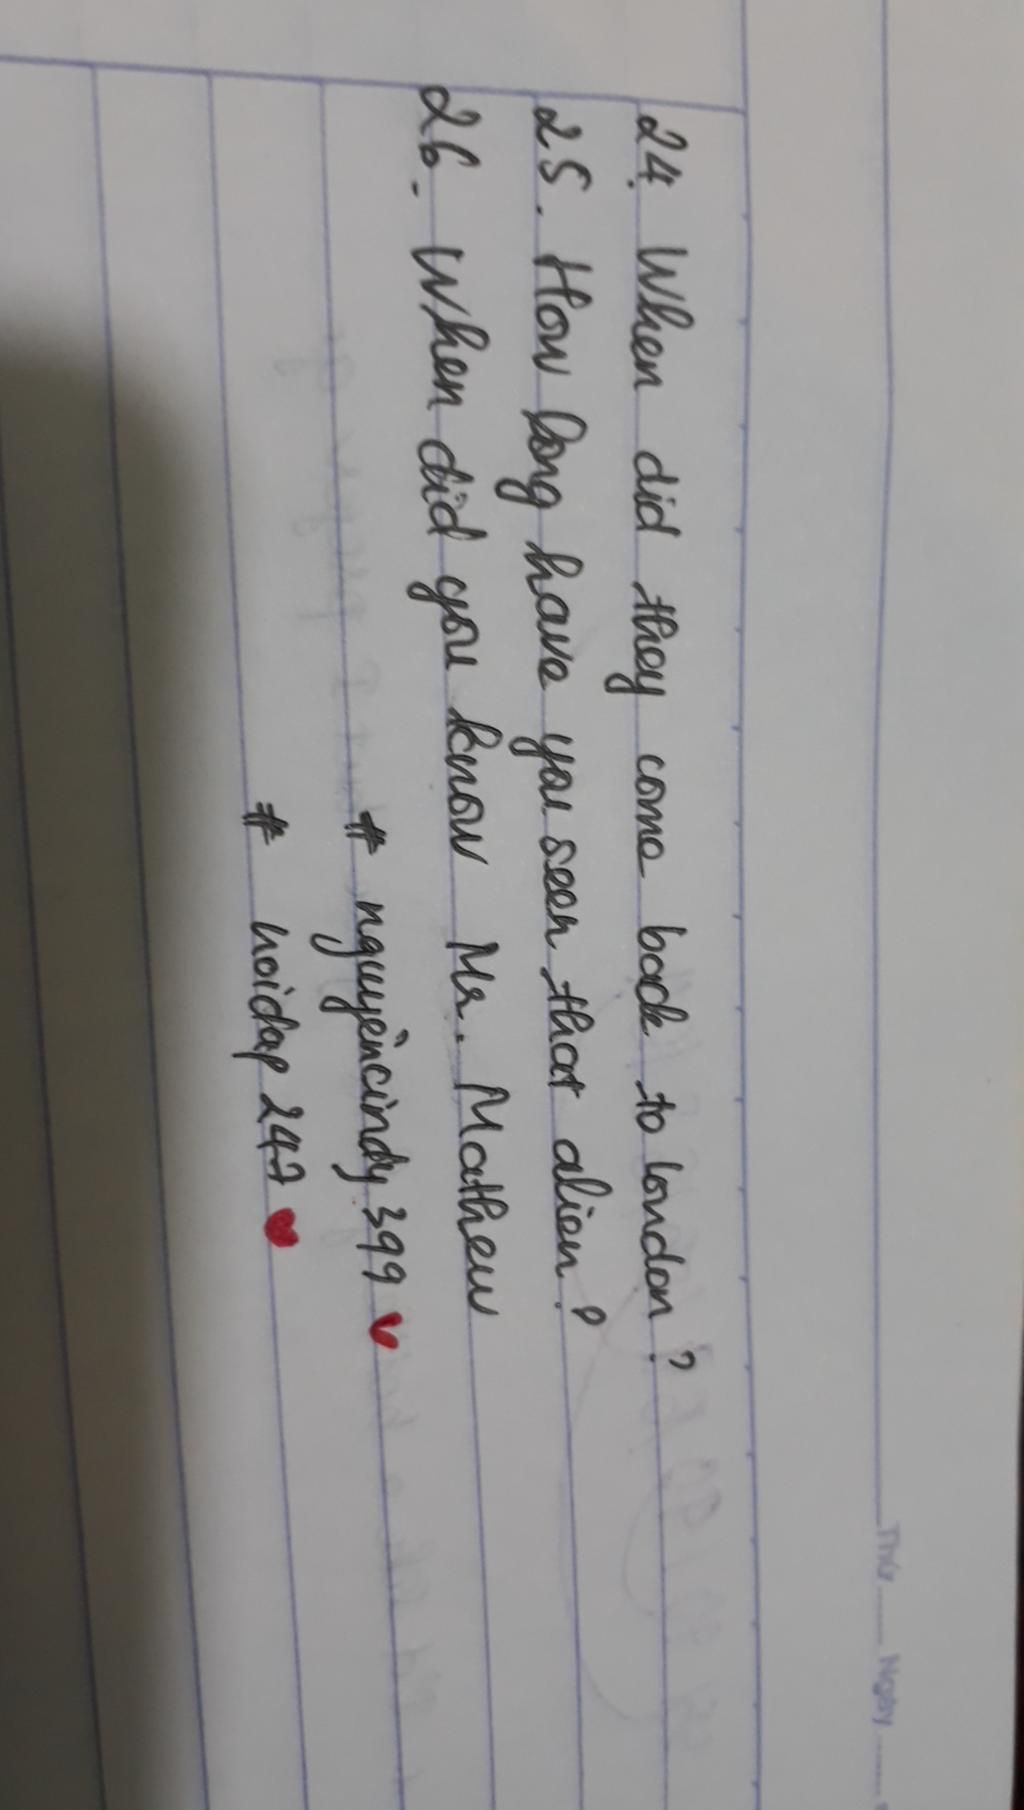 Thứ ...... Ngày ......
24. When did they come back to london?
25. How long have you seen that alien?
26. When did you know Mr. Mathew
# nguyêncindy399
# hoidap 247